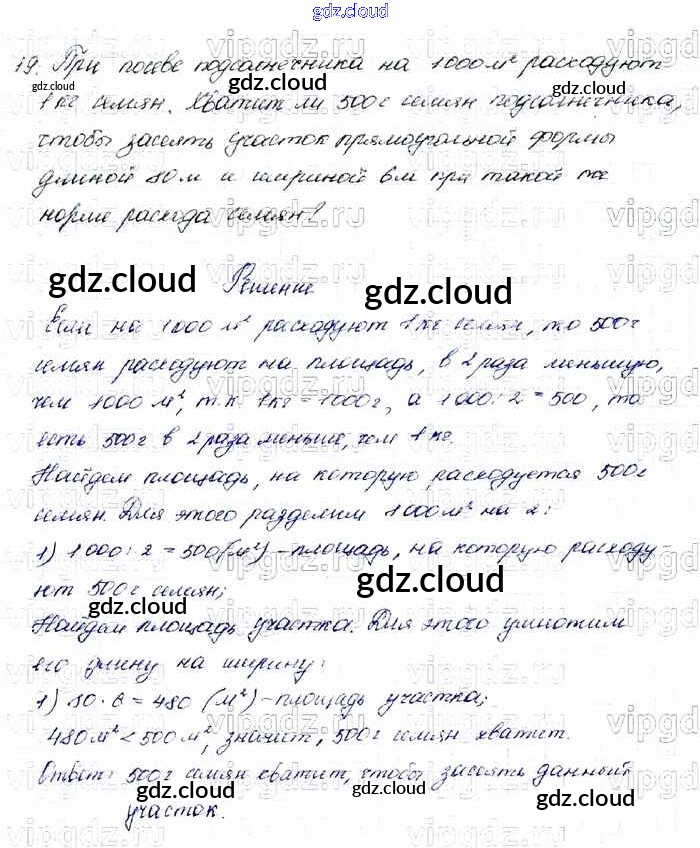 gdz.cloud
19. При посеве подсолнечника на 1000 м² расходуют
1 кг семян. Хватит ли 500 г семян подсолнечника,
чтобы засеять участок прямоугольной формы
длиной 80 м и шириной 6 м при такой же
норме расхода семян?
Решение
Если на 1000 м² расходуют 1 кг семян, то 500 г
семян расходуют на площадь, в 2 раза меньшую,
чем 1000 м², т.к. 1 кг = 1000 г, а 1000 : 2 = 500, то
есть 500 г в 2 раза меньше, чем 1 кг.
Найдем площадь, на которую расходуется 500 г
семян. Для этого разделим 1000 м² на 2:
1) 1000 : 2 = 500 (м²) - площадь, на которую расходу-
ют 500 г семян;
Найдем площадь участка. Для этого умножим
его длину на ширину:
1) 80 · 6 = 480 (м²) - площадь участка;
480 м² < 500 м², значит, 500 г семян хватит.
Ответ: 500 г семян хватит, чтобы засеять данный
участок.